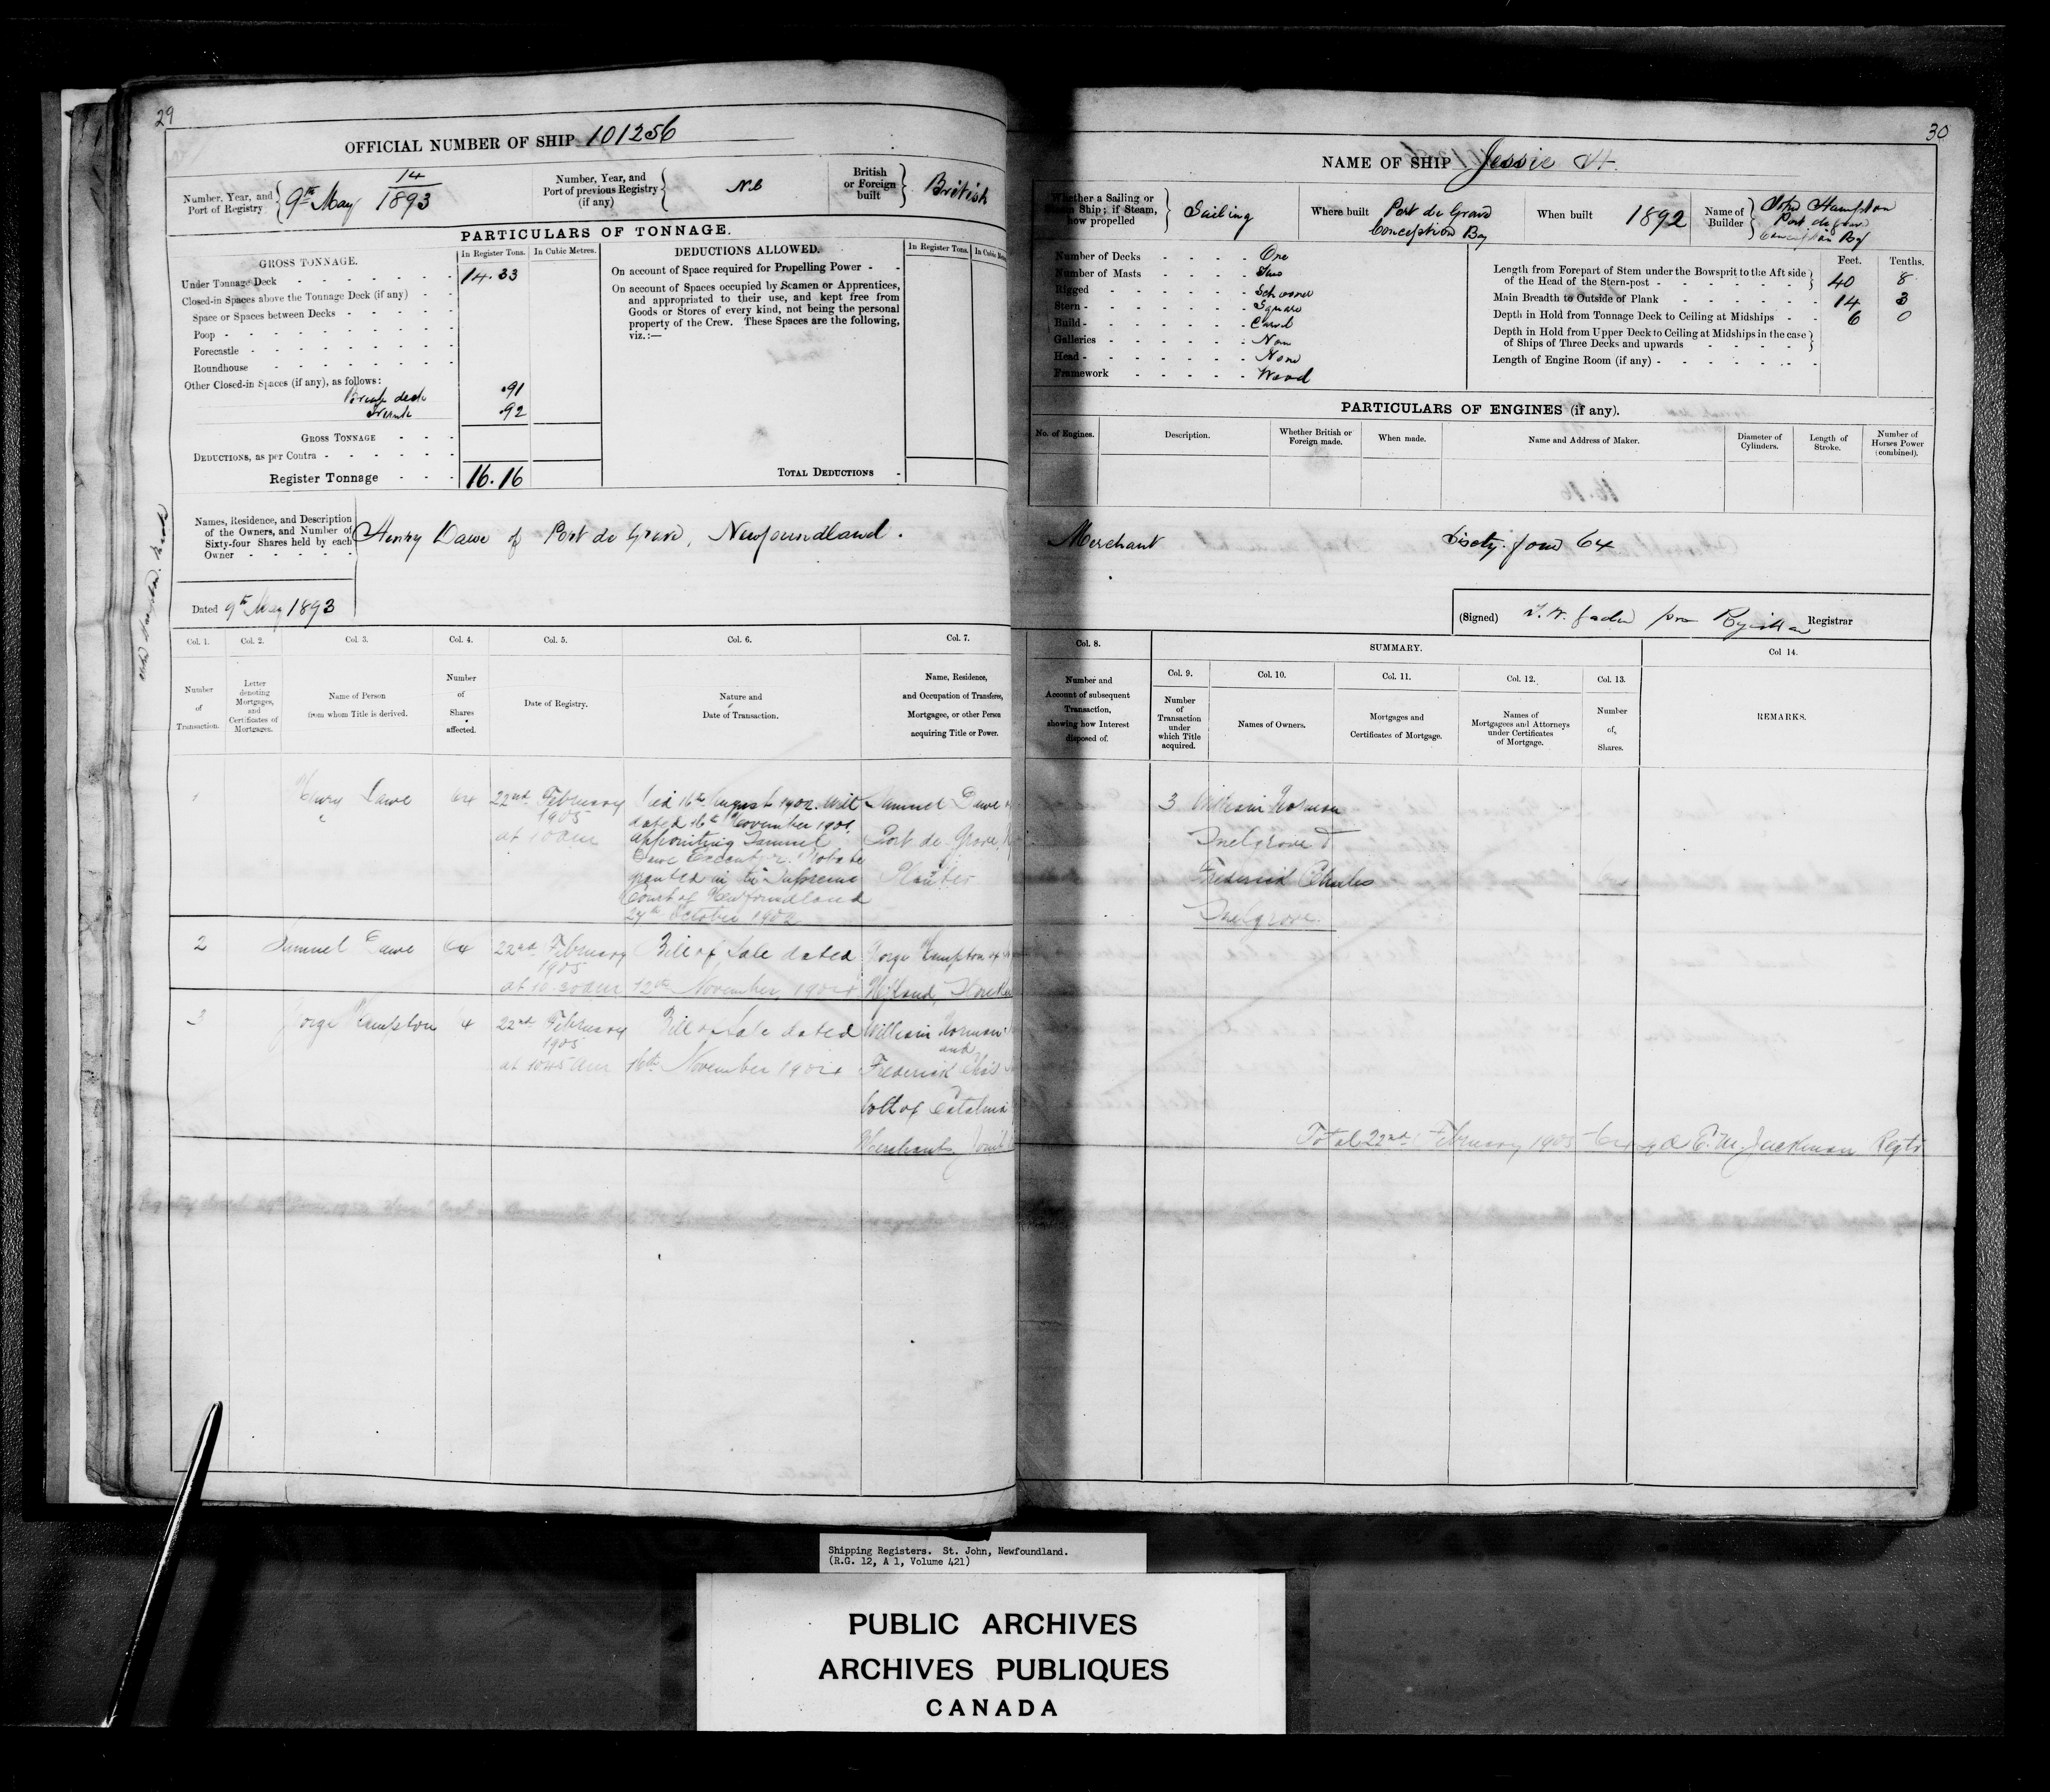 29
OFFICIAL NUMBER OF SHIP 101256
Number, Year, and Port of Registry
9th May 14/1893
Number, Year, and Port of previous Registry (if any)
British or Foreign built
British
PARTICULARS OF TONNAGE.
GROSS TONNAGE.
In Register Tons.
In Cubic Metres.
Under Tonnage Deck
14.33
Closed-in Spaces above the Tonnage Deck (if any)
Space or Spaces between Decks
Poop
Forecastle
Roundhouse
Other Closed-in Spaces (if any), as follows:
Break deck .91
.92
GROSS TONNAGE
DEDUCTIONS, as per Contra
Register Tonnage 16.16
DEDUCTIONS ALLOWED.
In Register Tons.
On account of Space required for Propelling Power
On account of Spaces occupied by Seamen or Apprentices,
and appropriated to their use, and kept free from
Goods or Stores of every kind, not being the personal
property of the Crew. These Spaces are the following,
viz.:—
TOTAL DEDUCTIONS
Names, Residence, and Description
of the Owners, and Number of
Sixty-four Shares held by each
Owner
Henry Dawe of Port de Grave, Newfoundland.
Dated 9th May 1893
Col. 1.
Col. 2.
Col. 3.
Col. 4.
Col. 5.
Col. 6.
Col. 7.
Number of Transaction.
Letter denoting Mortgages, and Certificates of Mortgages.
Name of Person from whom Title is derived.
Number of Shares affected.
Date of Registry.
Nature and Date of Transaction.
Name, Residence, and Occupation of Transferee, Mortgagee, or other Person acquiring Title or Power.
1 Henry Dawe 64 22nd February 1905 at 10 am
Died 16th August 1902. Will
dated 16th November 1901
appointing Samuel
Dawe Executor. Probate
granted in the Supreme
Court of Newfoundland
27th October 1902
Samuel Dawe
Port de Grave
Planter
2 Samuel Dawe 64 22nd February 1905 at 10.30 am
Bill of Sale dated
12th November, 1904
George Hampton of
3 George Hampton 64 22nd February 1905 at 10.45 am
Bill of Sale dated
16th November 1904
William Norman
and
Frederick Chas
both of Catalina
Merchants, Joint
30
NAME OF SHIP Jessie H.
Whether a Sailing or Steam Ship; if Steam, how propelled
Sailing
Where built
Port de Grave
Conception Bay
When built 1892
Name of Builder
John Hampton
Port de Grave
Conception Bay
Number of Decks One
Number of Masts Two
Rigged Schooner
Stern Square
Build Carvel
Galleries None
Head None
Framework Wood
Feet. Tenths.
Length from Forepart of Stem under the Bowsprit to the Aft side
of the Head of the Stern-post 40 8
Main Breadth to Outside of Plank 14 3
Depth in Hold from Tonnage Deck to Ceiling at Midships 6 0
Depth in Hold from Upper Deck to Ceiling at Midships in the case
of Ships of Three Decks and upwards
Length of Engine Room (if any)
PARTICULARS OF ENGINES (if any).
No. of Engines.
Description.
Whether British or Foreign made.
When made.
Name and Address of Maker.
Diameter of Cylinders.
Length of Stroke.
Number of Horses Power (combined).
Merchant Sixty four 64
(Signed) pro Registrar Registrar
Col. 8.
SUMMARY.
Col 14.
Number and Account of subsequent Transaction, showing how Interest disposed of.
Col. 9.
Col. 10.
Col. 11.
Col. 12.
Col. 13.
Number of Transaction under which Title acquired.
Names of Owners.
Mortgages and Certificates of Mortgage.
Names of Mortgagees and Attorneys under Certificates of Mortgage.
Number of Shares.
REMARKS.
3 William Norman
Snelgrove &
Frederick Charles 64
Snelgrove.
Total 22nd February 1905 64 sgd E. M. Jackman Regtr
Shipping Registers. St. John, Newfoundland.
(R.G. 12, A 1, Volume 421)
PUBLIC ARCHIVES
ARCHIVES PUBLIQUES
CANADA